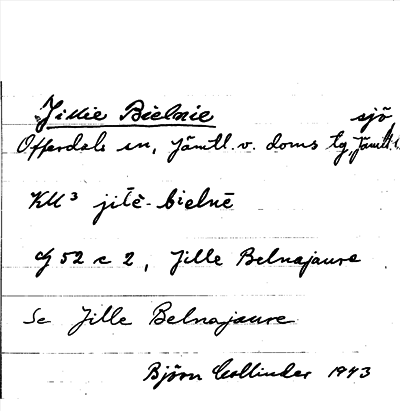 Jillie Bielnie sjö
Offerdals sn, Jämtl. v. doms tg, Jämtl. l
KU³ jilē-bielnē
G 52 c 2, Jille Belnajaure
Se Jille Belnajaure
Björn Collinder 1943